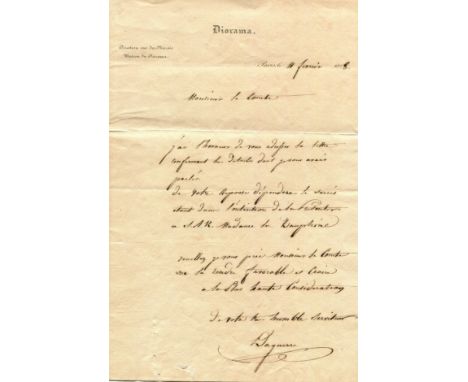 Diorama.
Paris le 11 février
Monsieur le Comte
j'ai l'honneur de vous adresser la lettre
confirmant les details dont je vous avais
parlé.
de votre reponse dépendra le succès
de la
a S.A.R. Madame la Dauphine
veuillez je vous prie Monsieur le Comte
me la rendre favorable et Croire
a la Plus haute Consideration
De votre humble Serviteur
Daguerre